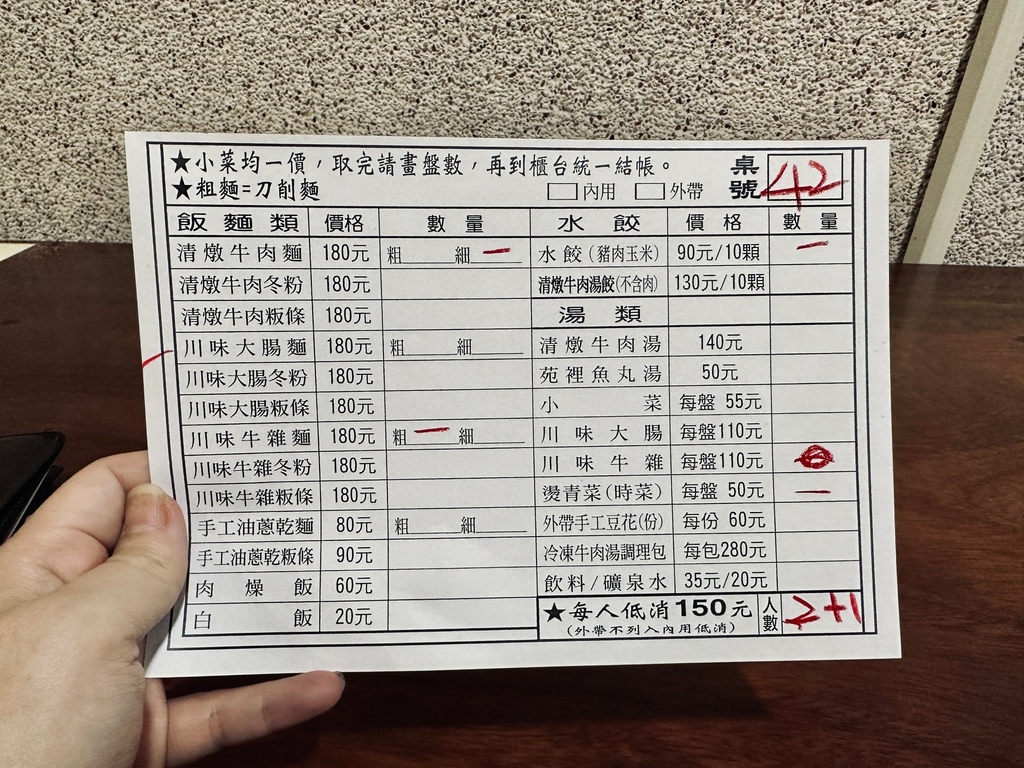 ★小菜均一價，取完請畫盤數，再到櫃台統一結帳。
★粗麵=刀削麵
內用 外帶
桌號 42
飯麵類 價格 數量 水餃 價格 數量
清燉牛肉麵 180元 粗 細 一 水餃(豬肉玉米) 90元/10顆 一
清燉牛肉冬粉 180元 清燉牛肉湯餃(不含肉) 130元/10顆
清燉牛肉粄條 180元 湯類
川味大腸麵 180元 粗 細 清燉牛肉湯 140元
川味大腸冬粉 180元 苑裡魚丸湯 50元
川味大腸粄條 180元 小菜 每盤 55元
川味牛雜麵 180元 粗 一 細 川味大腸 每盤110元
川味牛雜冬粉 180元 川味牛雜 每盤110元
川味牛雜粄條 180元 燙青菜(時菜) 每盤 50元 一
手工油蔥乾麵 80元 粗 細 外帶手工豆花(份) 每份 60元
手工油蔥乾粄條 90元 冷凍牛肉湯調理包 每包280元
肉燥飯 60元 飲料/礦泉水 35元/20元
白飯 20元 ★每人低消150元 人數 2+1
(外帶不列入內用低消)